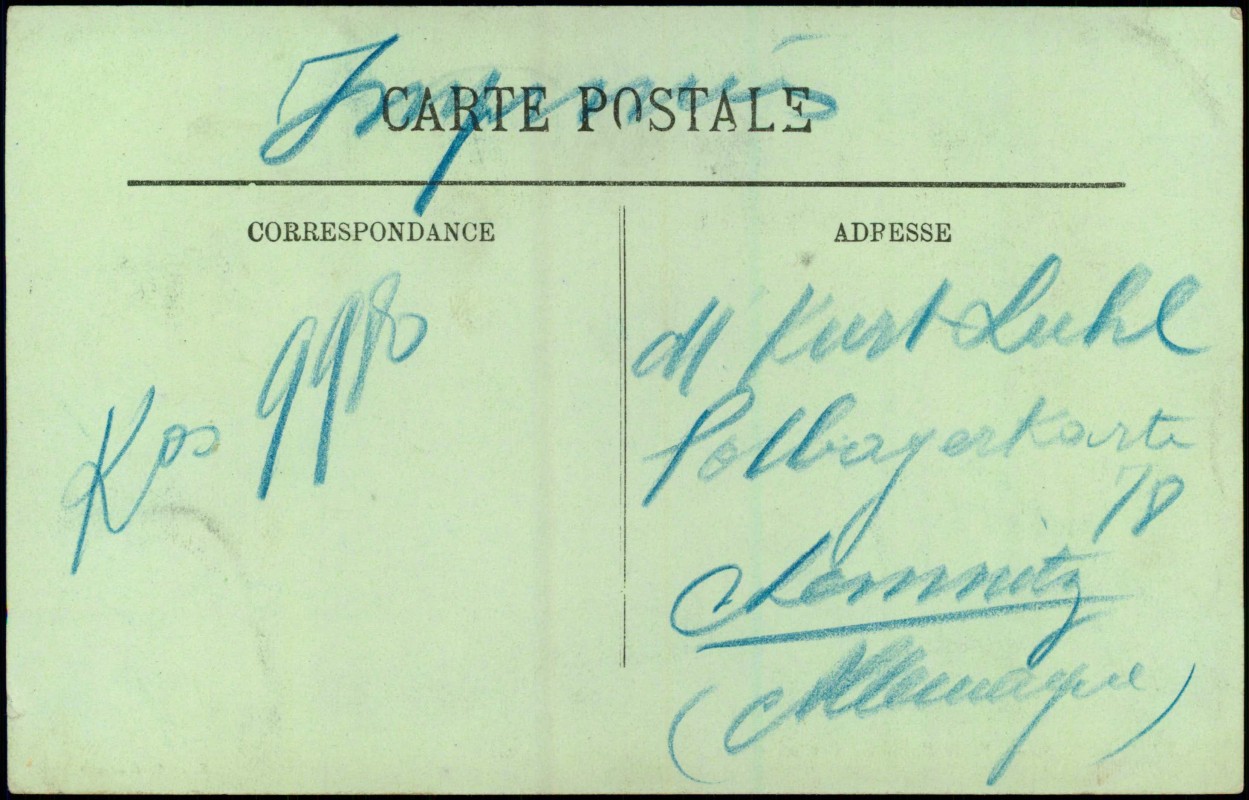 Imprimés
CARTE POSTALE
CORRESPONDANCE
ADRESSE
Kos 9980
M Kurt Luhl
78
Chemnitz
(Allemagne)